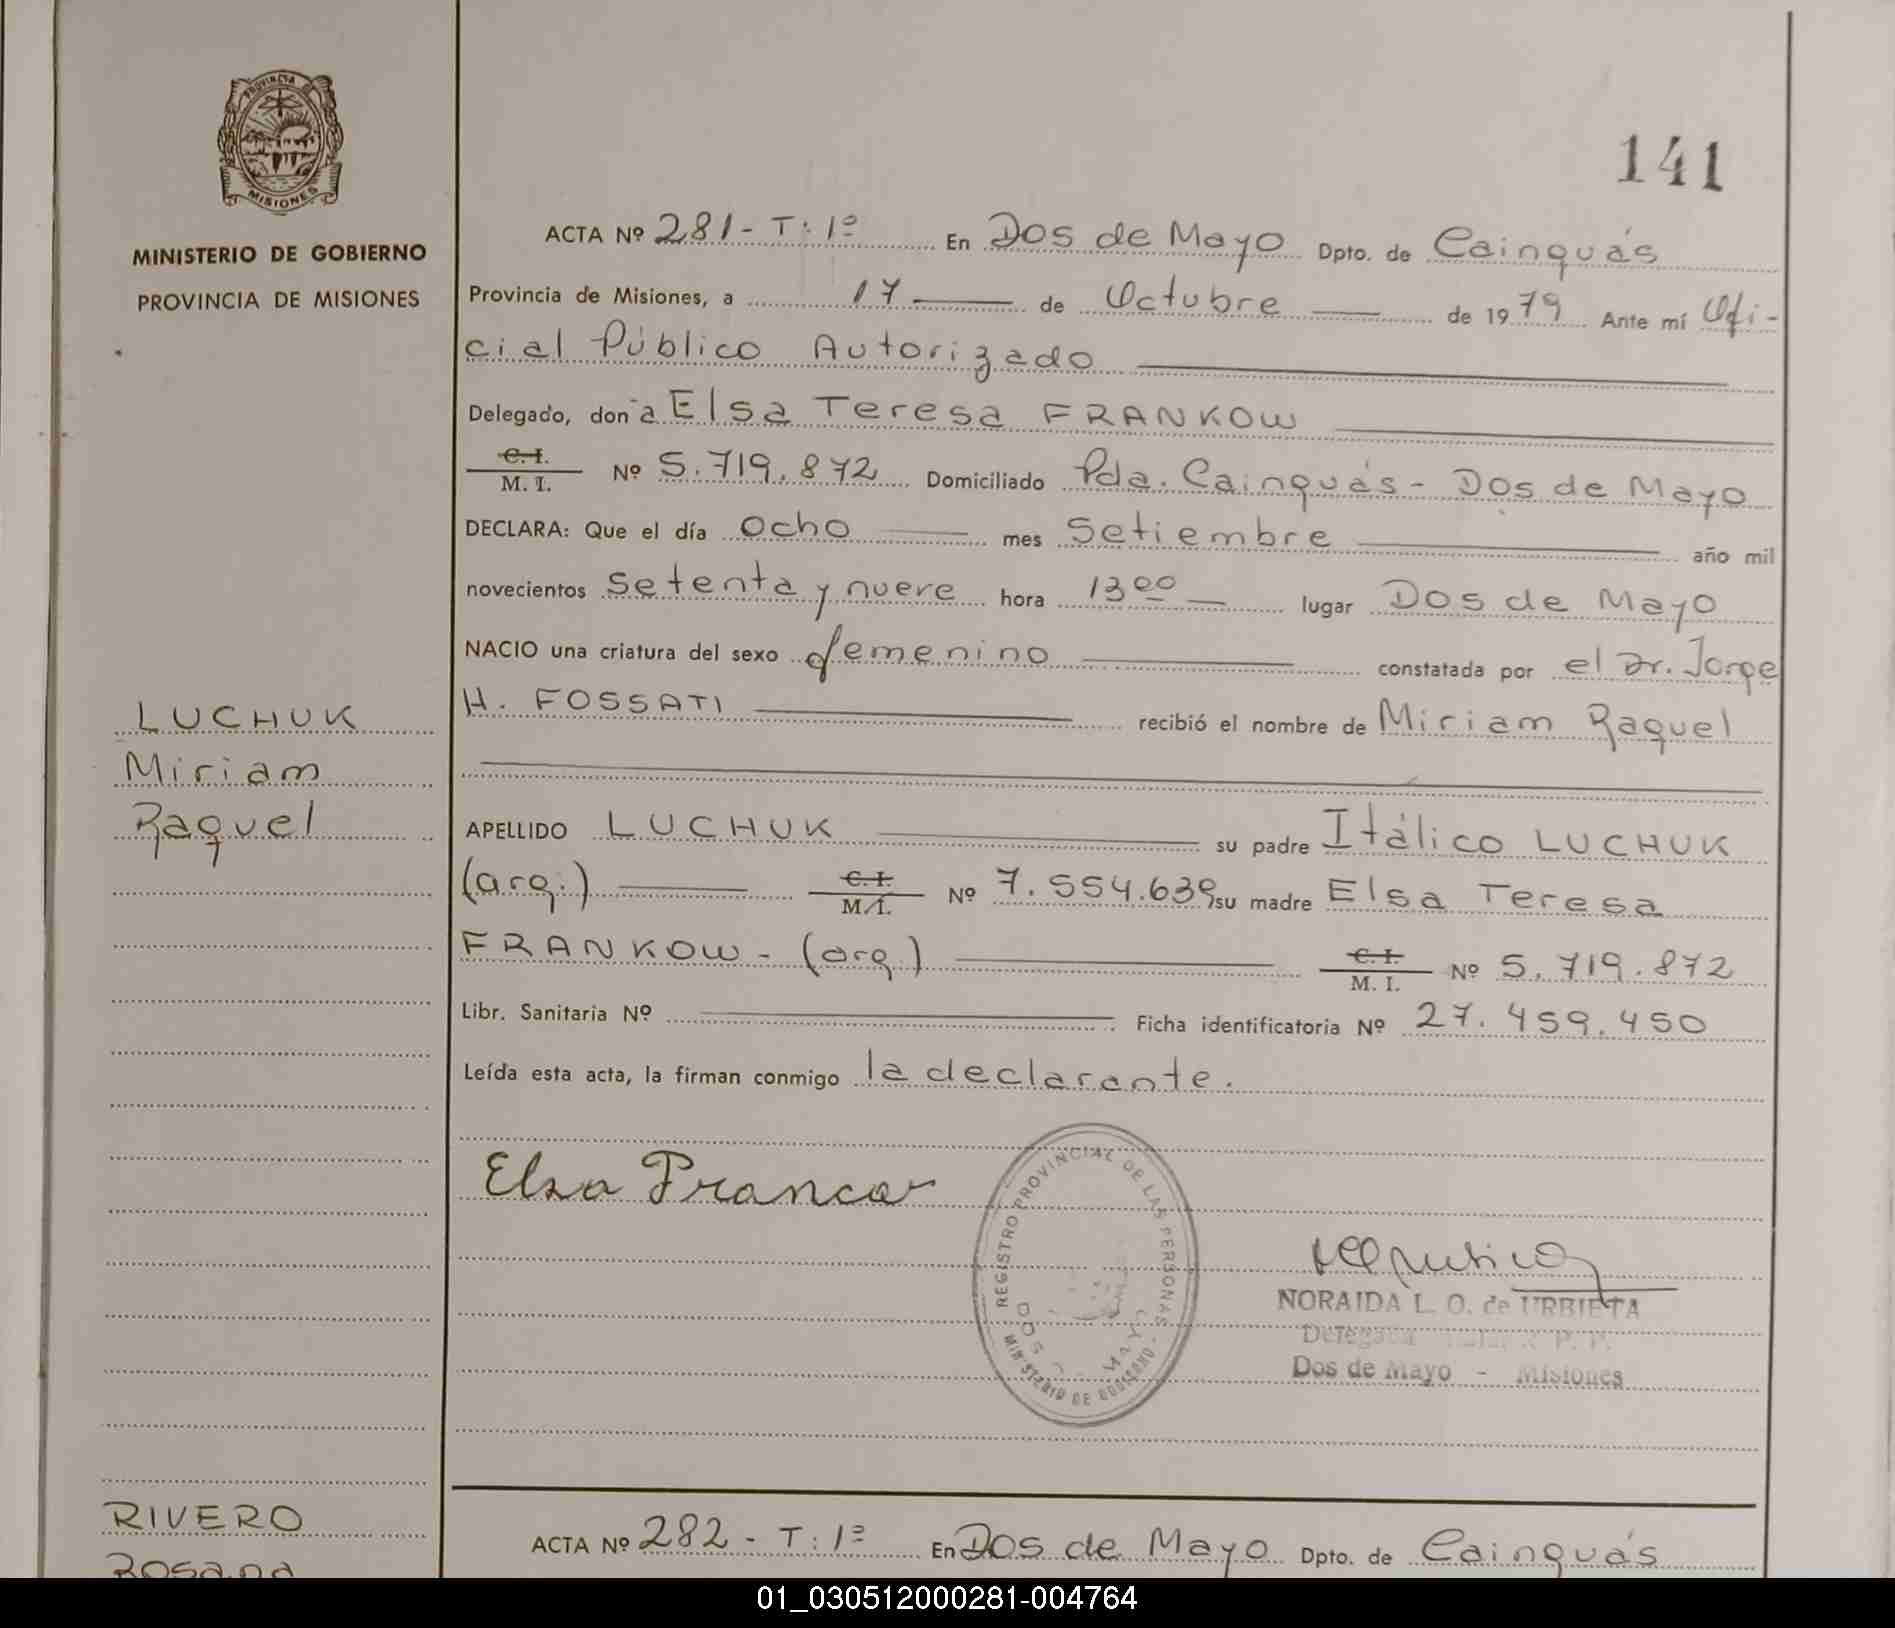 PROVINCIA
MISIONES
MINISTERIO DE GOBIERNO
PROVINCIA DE MISIONES
141
ACTA Nº 281 - T: 1º En Dos de Mayo Dpto. de Cainguás
Provincia de Misiones, a 17 de Octubre de 1979 Ante mí Ofi-
cial Público Autorizado
Delegado, don a Elsa Teresa FRANKOW
C. I. M. I. Nº 5.719.872 Domiciliado Pda. Cainguás - Dos de Mayo
DECLARA: Que el día ocho mes Setiembre año mil
novecientos setenta y nueve hora 13 00 lugar Dos de Mayo
NACIO una criatura del sexo femenino constatada por el Dr. Jorge
H. FOSSATI recibió el nombre de Miriam Raquel
LUCHUK
Miriam
Raquel
APELLIDO LUCHUK su padre Itálico LUCHUK
(arg.) C. I. M. I. Nº 7.554.639 su madre Elsa Teresa
FRANKOW - (arg.) C. I. M. I. Nº 5.719.872
Libr. Sanitaria Nº Ficha identificatoria Nº 27.459.450
Leída esta acta, la firman conmigo la declarante.
Elsa Francov
REGISTRO PROVINCIAL DE LAS PERSONAS
MINISTERIO DE GOBIERNO
DOS MAYO
NORAIDA L. O. de URBIETA
Dos de Mayo - Misiones
RIVERO
Rosana
ACTA Nº 282 - T: 1º En Dos de Mayo Dpto. de Cainguás
01_030512000281-004764